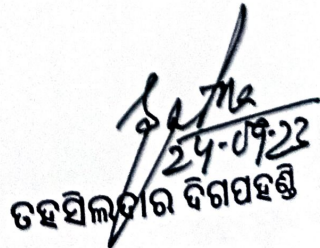 24-09-23
ତହସିଲଦାର ଦିଗପହଣ୍ଡି